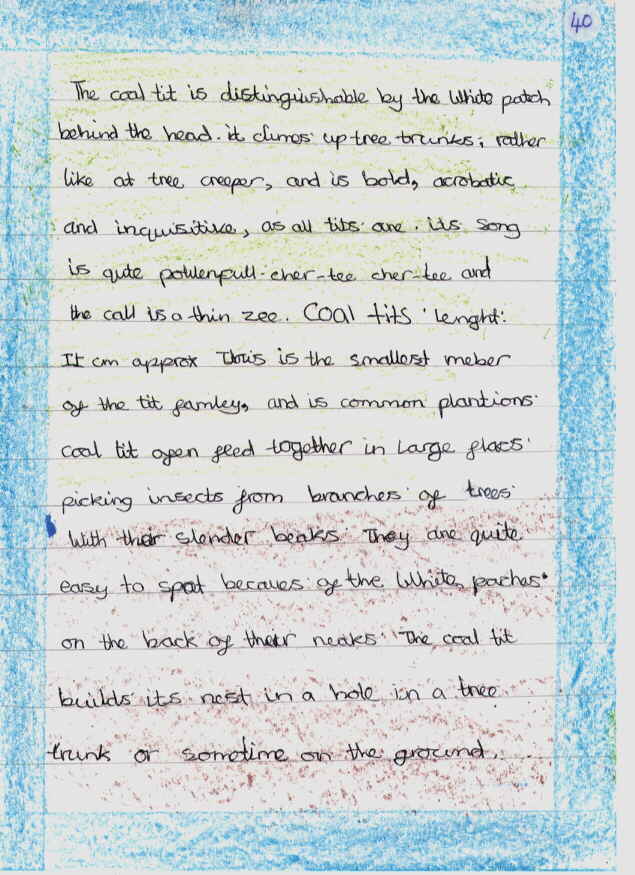 40
The coal tit is distinguishable by the White patch
behind the head. it climes up tree trunks; rather
like at tree creeper, and is bold, acrobatic
and inquisitive, as all tits are. its song
is qute cher-tee cher-tee and
the call is a thin zee. Coal tits lenght:
II cm approx This is the smallest meber
of the tit famley, and is common plantions.
coal tit open feed together in large flacs.
picking insects from branches of trees
With their slender beaks. They are quite
easy to spot becaues of the White paches
on the back of their neaks. The coal tit
builds its nest in a hole in a tree
trunk or sometime on the ground.